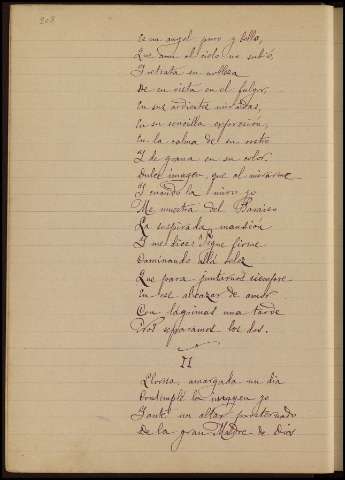 208
Es un angel puro y bello,
Que aun al cielo no subió,
I retrata su nobleza
De su vista en el fulgor,
En sus ardientes miradas,
En su sencilla expresión,
En la calma de su rostro
I de grana en su color.
Dulce imagen, que al mirarme
I cuando la miro yo
Me muestra del Paraiso
La suspirada mansión
I me dice: Sigue firme
Caminando allá veloz
Que para juntarnos siempre
En ese alcazar de amor
Con lágrimas una tarde
Nos separamos los dos.
II
Llorosa, amargada un dia
Contemplé la imagen yo
Jante un altar
De la gran Madre de Dios